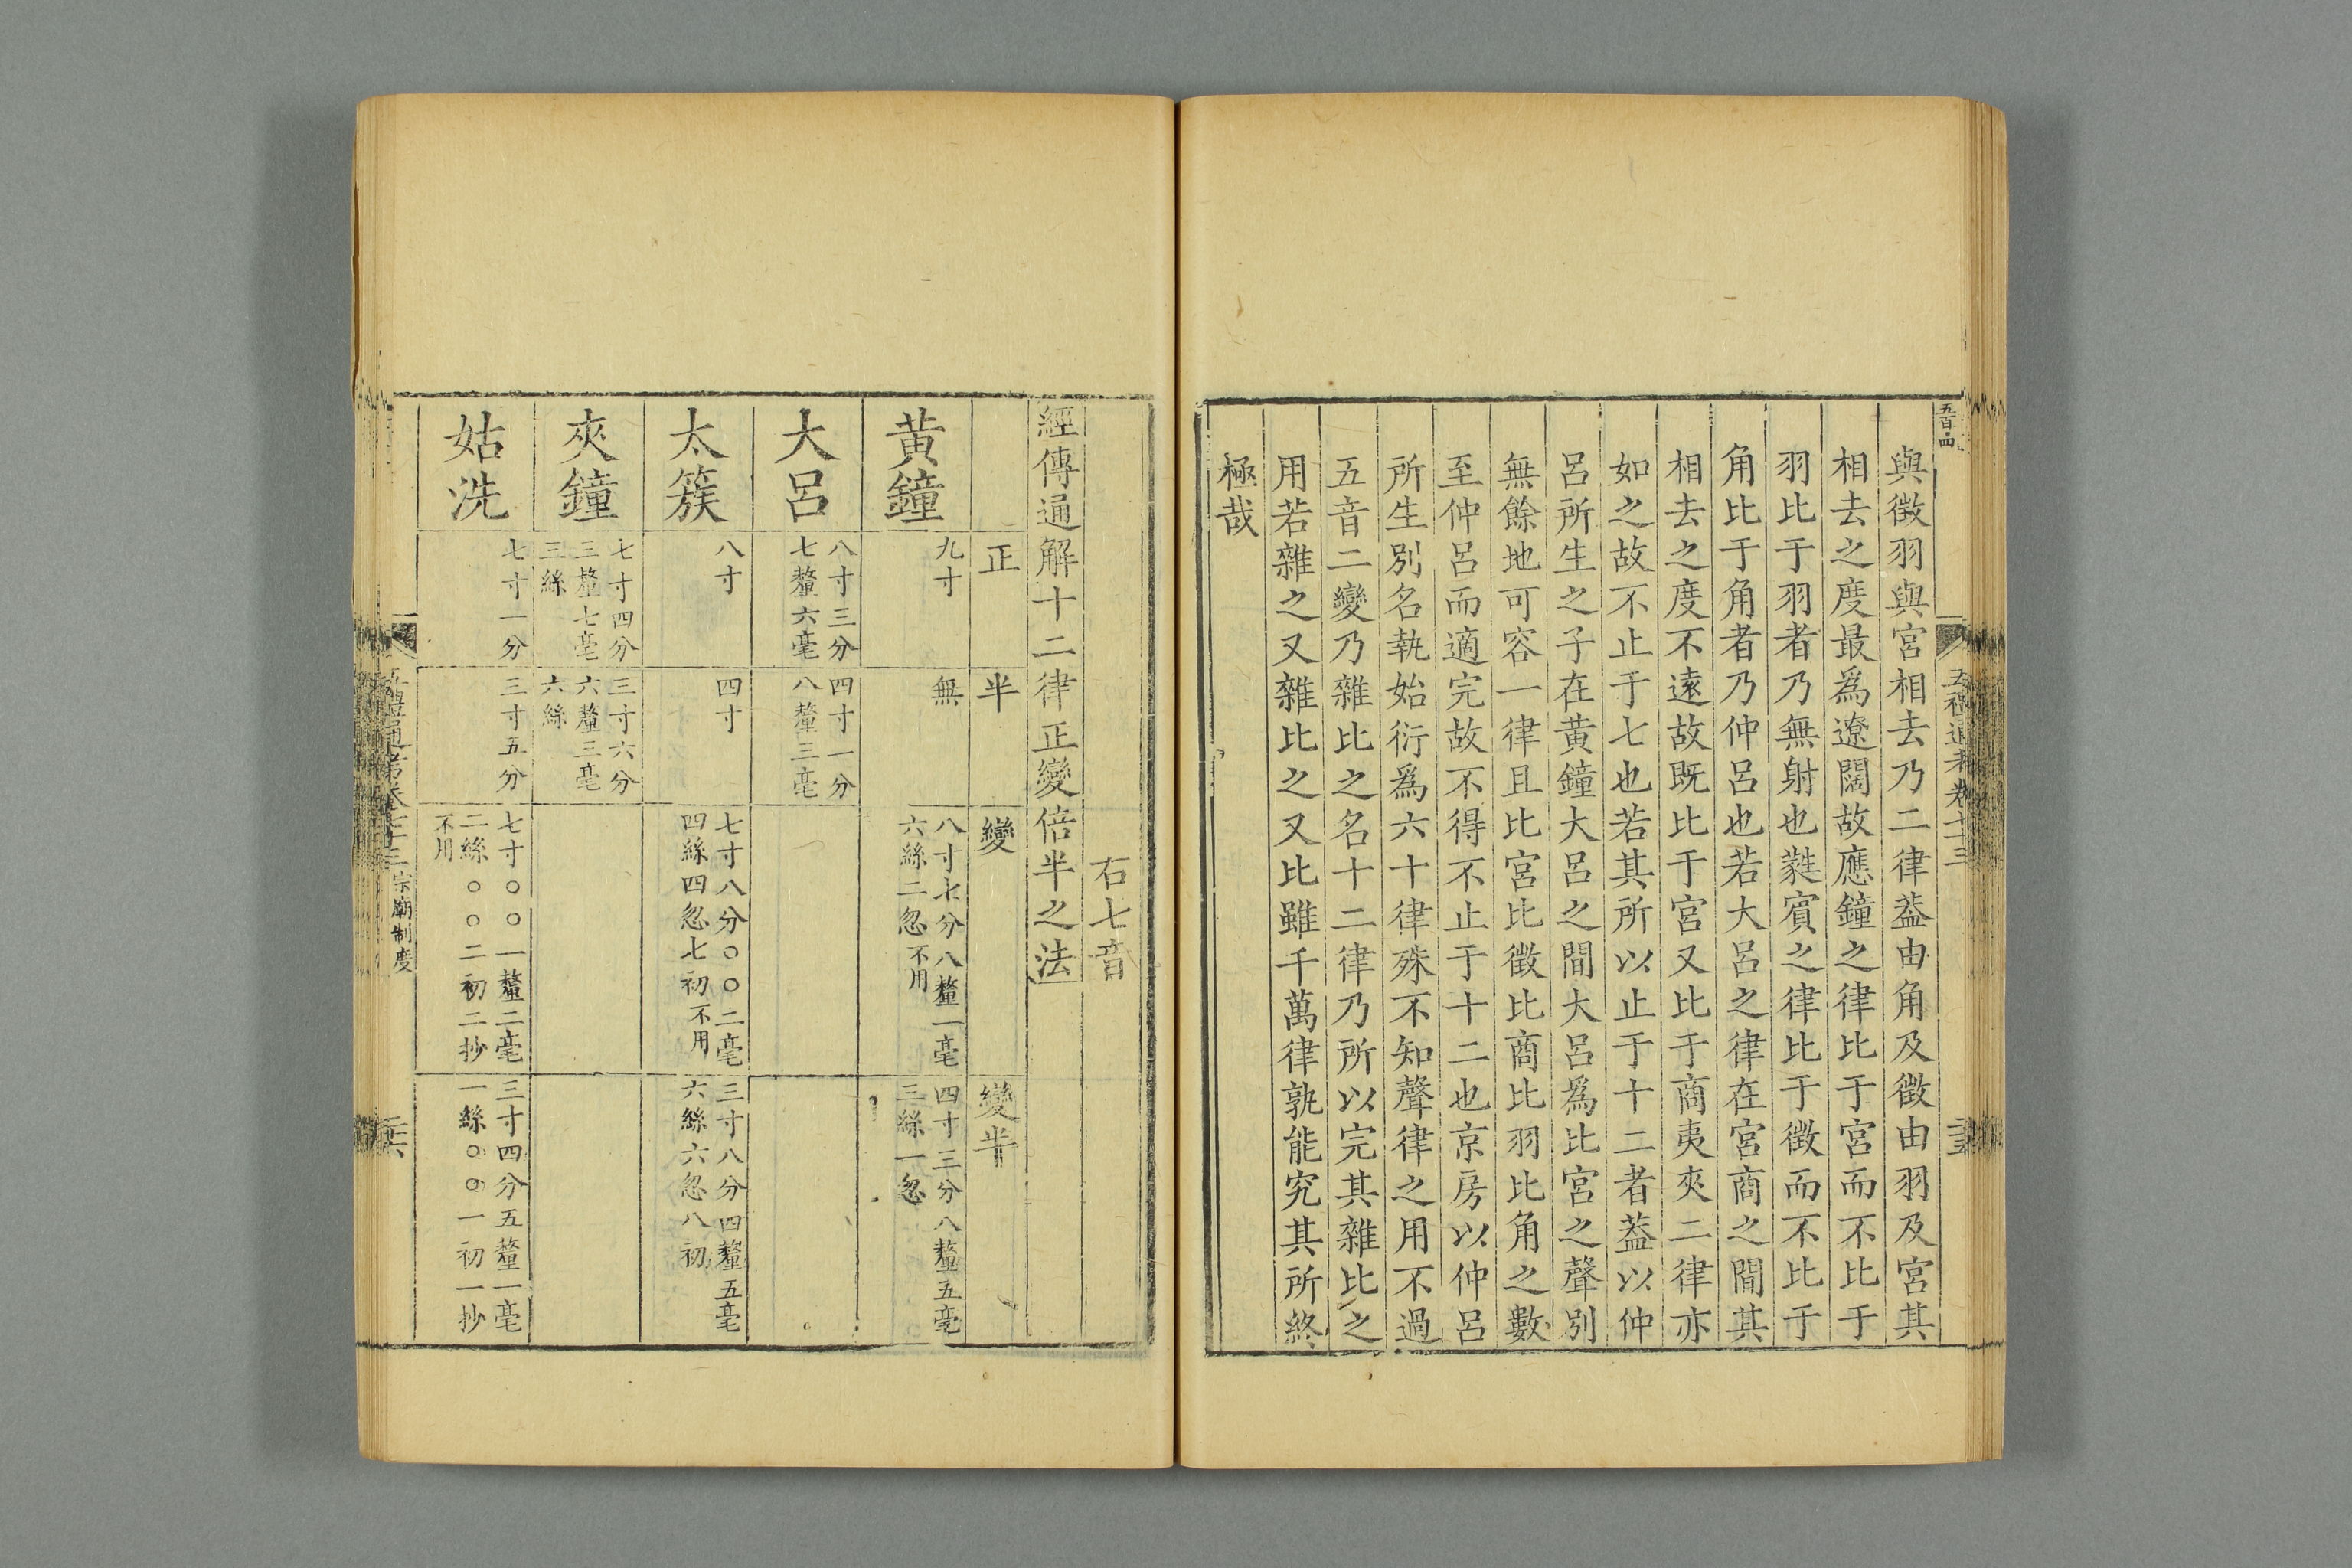 五百四
與徵羽與宮相去乃二律葢由角及徵由羽及宮其
相去之度最爲遼闊故應鐘之律比于宮而不比于
羽比于羽者乃無射也蕤賓之律比于徵而不比于
角比于角者乃仲呂也若大呂之律在宮商之間其
相去之度不遠故既比于宮又比于商夷夾二律亦
如之故不止于七也若其所以止于十二者葢以仲
呂所生之子在黃鐘大呂之間大呂爲比宮之聲別
無餘地可容一律且比宮比徵比商比羽比角之數
至仲呂而適完故不得不止于十二也京房以仲呂
所生別名執始衍爲六十律殊不知聲律之用不過
五音二變乃雜比之名十二律乃所以完其雜比之
用若雜之又雜比之又比雖千萬律孰能究其所終
極哉
右七音
經傳通解十二律正變倍半之法
正
半
變
變半
黃鐘
九寸
無
八寸七分八釐一毫
六絲二忽不用
四寸三分八釐五毫
三絲一忽
大呂
八寸三分
七釐六毫
四寸一分
八釐三毫
太簇
八寸
四寸
七寸八分〇〇二毫
四絲四忽七初不用
三寸八分四釐五毫
六絲六忽八初
夾鐘
七寸四分
三釐七毫
三絲
三寸六分
六釐三毫
六絲
姑洗
七寸一分
三寸五分
七寸〇〇一釐二毫
二絲〇〇二初二抄
不用
三寸四分五釐一毫
一絲〇〇一初一抄
宗廟制度